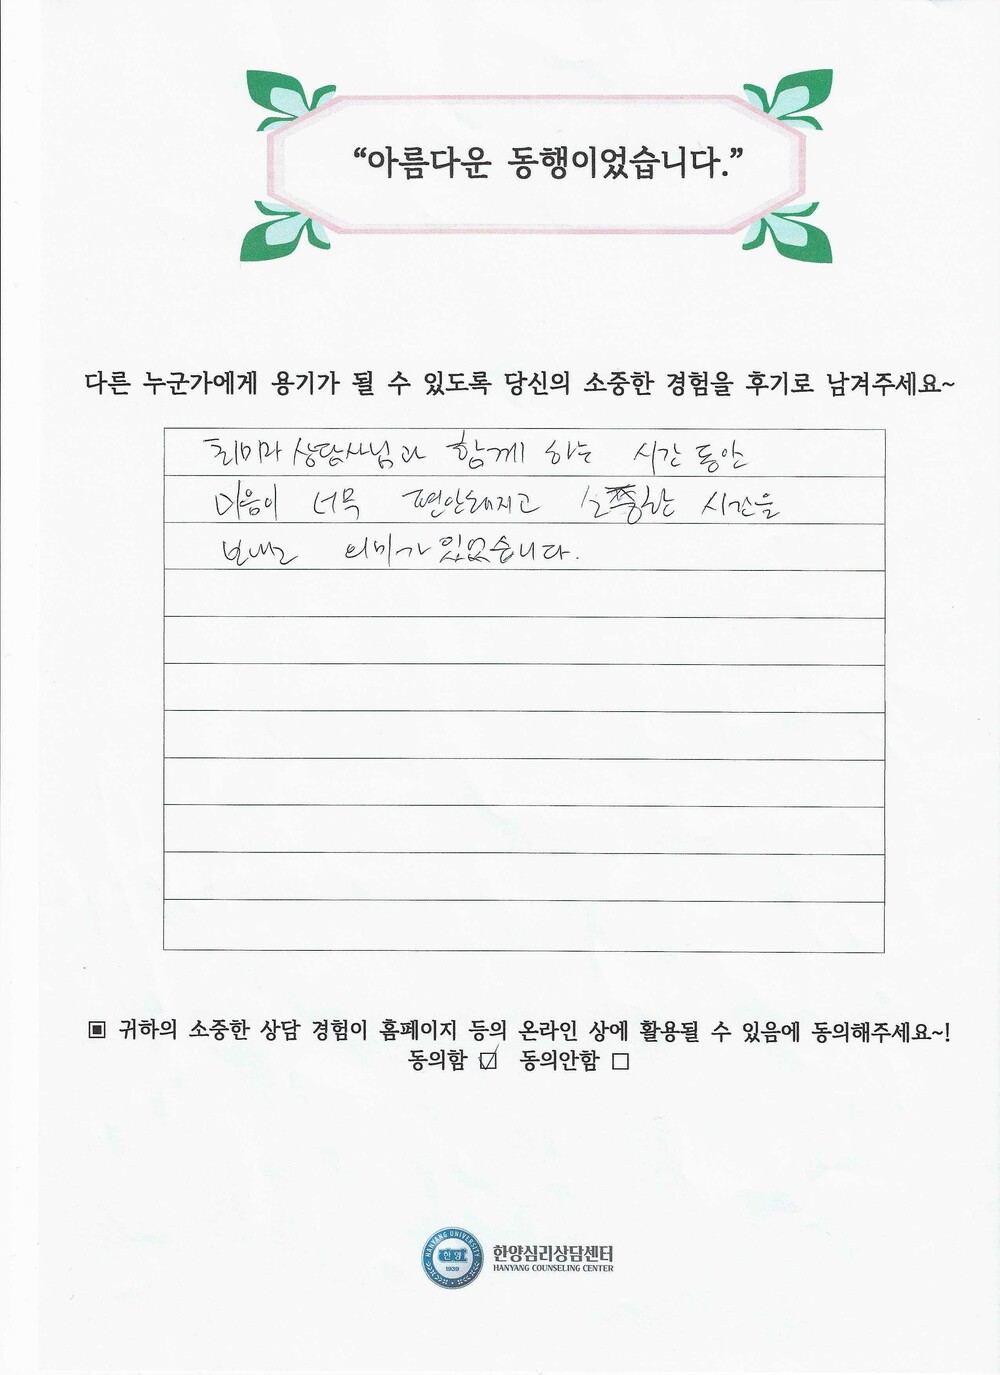 “아름다운 동행이었습니다.”
다른 누군가에게 용기가 될 수 있도록 당신의 소중한 경험을 후기로 남겨주세요~
최미라 상담사님과 함께 하는 시간 동안
마음이 너무 편안해지고 소중한 시간을
보내는 의미가 있었습니다.
▣ 귀하의 소중한 상담 경험이 홈페이지 등의 온라인 상에 활용될 수 있음에 동의해주세요~!
동의함 ☑ 동의안함 □
HANYANG UNIVERSITY
한양
1939
한양심리상담센터
HANYANG COUNSELING CENTER